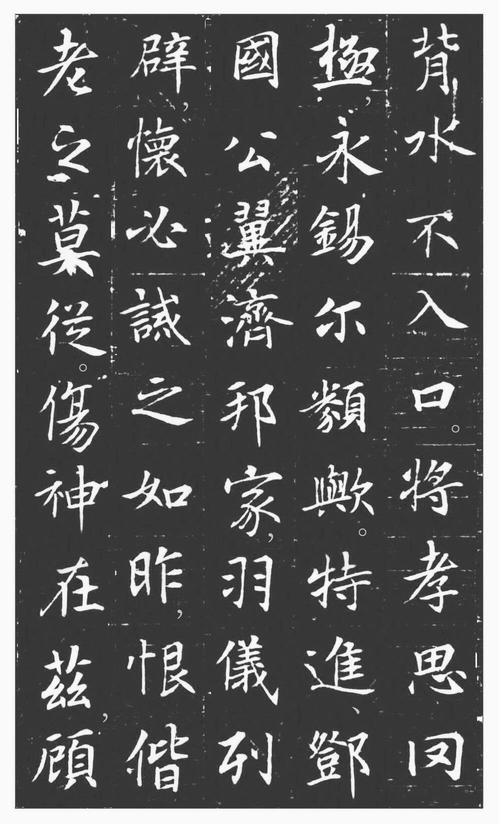 背水不入口。將孝思罔
極，永錫尔類歟。特進、鄧
國公翼濟邦家，羽儀列
辟，懷必誡之如昨，恨偕
老之莫從。傷神在茲，顧